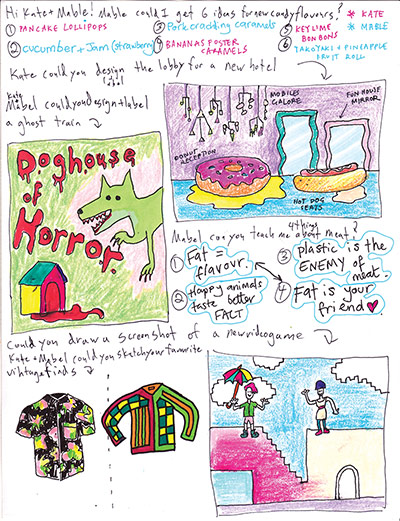 Hi Kate + Mable! Mable could I get 6 ideas for new candy flavours?
* KATE
* MABLE
① PANCAKE LOLLIPOPS
② cucumber + Jam (strawberry)
③ Pork crackling caramels
④ BANANAS FOSTER CARAMELS
⑤ KEY LIME BONBONS
⑥ TAKOYAKI + PINEAPPLE FRUIT ROLL
Kate could you design the lobby for a new hotel
Kate Mabel could you design + label
a ghost train
label
MOBILES GALORE
FUN HOUSE MIRROR
DONUT RECEPTION
HOT DOG SEATS
Doghouse
of
Horror
Mabel can you teach me 4 things about meat?
① Fat =
flavour.
② Happy animals
taste better
FACT
③ plastic is the
ENEMY of
meat.
④ Fat is your
friend
Could you draw a screenshot of a new videogame
Kate + Mabel could you sketch your favourite
vintage finds